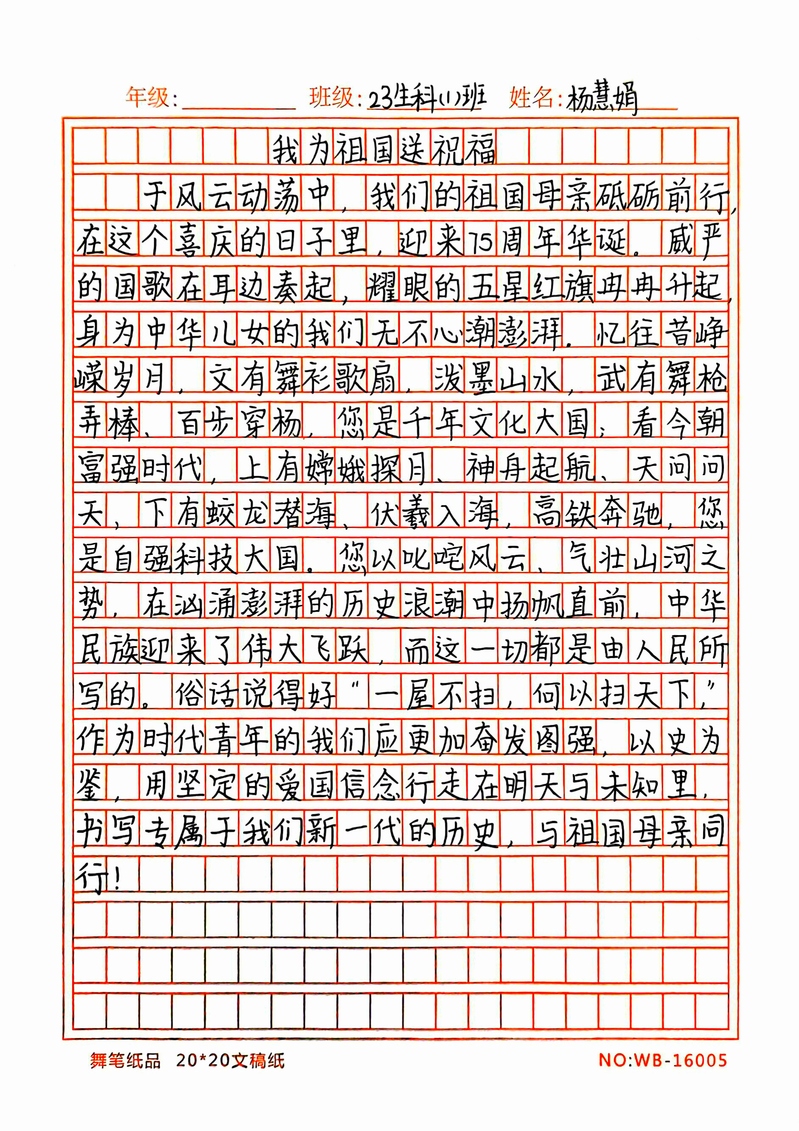 年级: 班级: 23生科(1)班 姓名: 杨慧娟
我为祖国送祝福
于风云动荡中，我们的祖国母亲砥砺前行，
在这个喜庆的日子里，迎来75周年华诞。威严
的国歌在耳边奏起，耀眼的五星红旗冉冉升起，
身为中华儿女的我们无不心潮澎湃。忆往昔峥
嵘岁月，文有舞衫歌扇，泼墨山水，武有舞枪
弄棒、百步穿杨，您是千年文化大国；看今朝
富强时代，上有嫦娥探月、神舟起航、天问问
天，下有蛟龙潜海、伏羲入海，高铁奔驰，您
是自强科技大国。您以叱咤风云、气壮山河之
势，在汹涌澎湃的历史浪潮中扬帆直前，中华
民族迎来了伟大飞跃，而这一切都是由人民所
写的。俗话说得好“一屋不扫，何以扫天下，”
作为时代青年的我们应更加奋发图强，以史为
鉴，用坚定的爱国信念行走在明天与未知里，
书写专属于我们新一代的历史，与祖国母亲同
行！
舞笔纸品 20*20文稿纸 NO:WB-16005